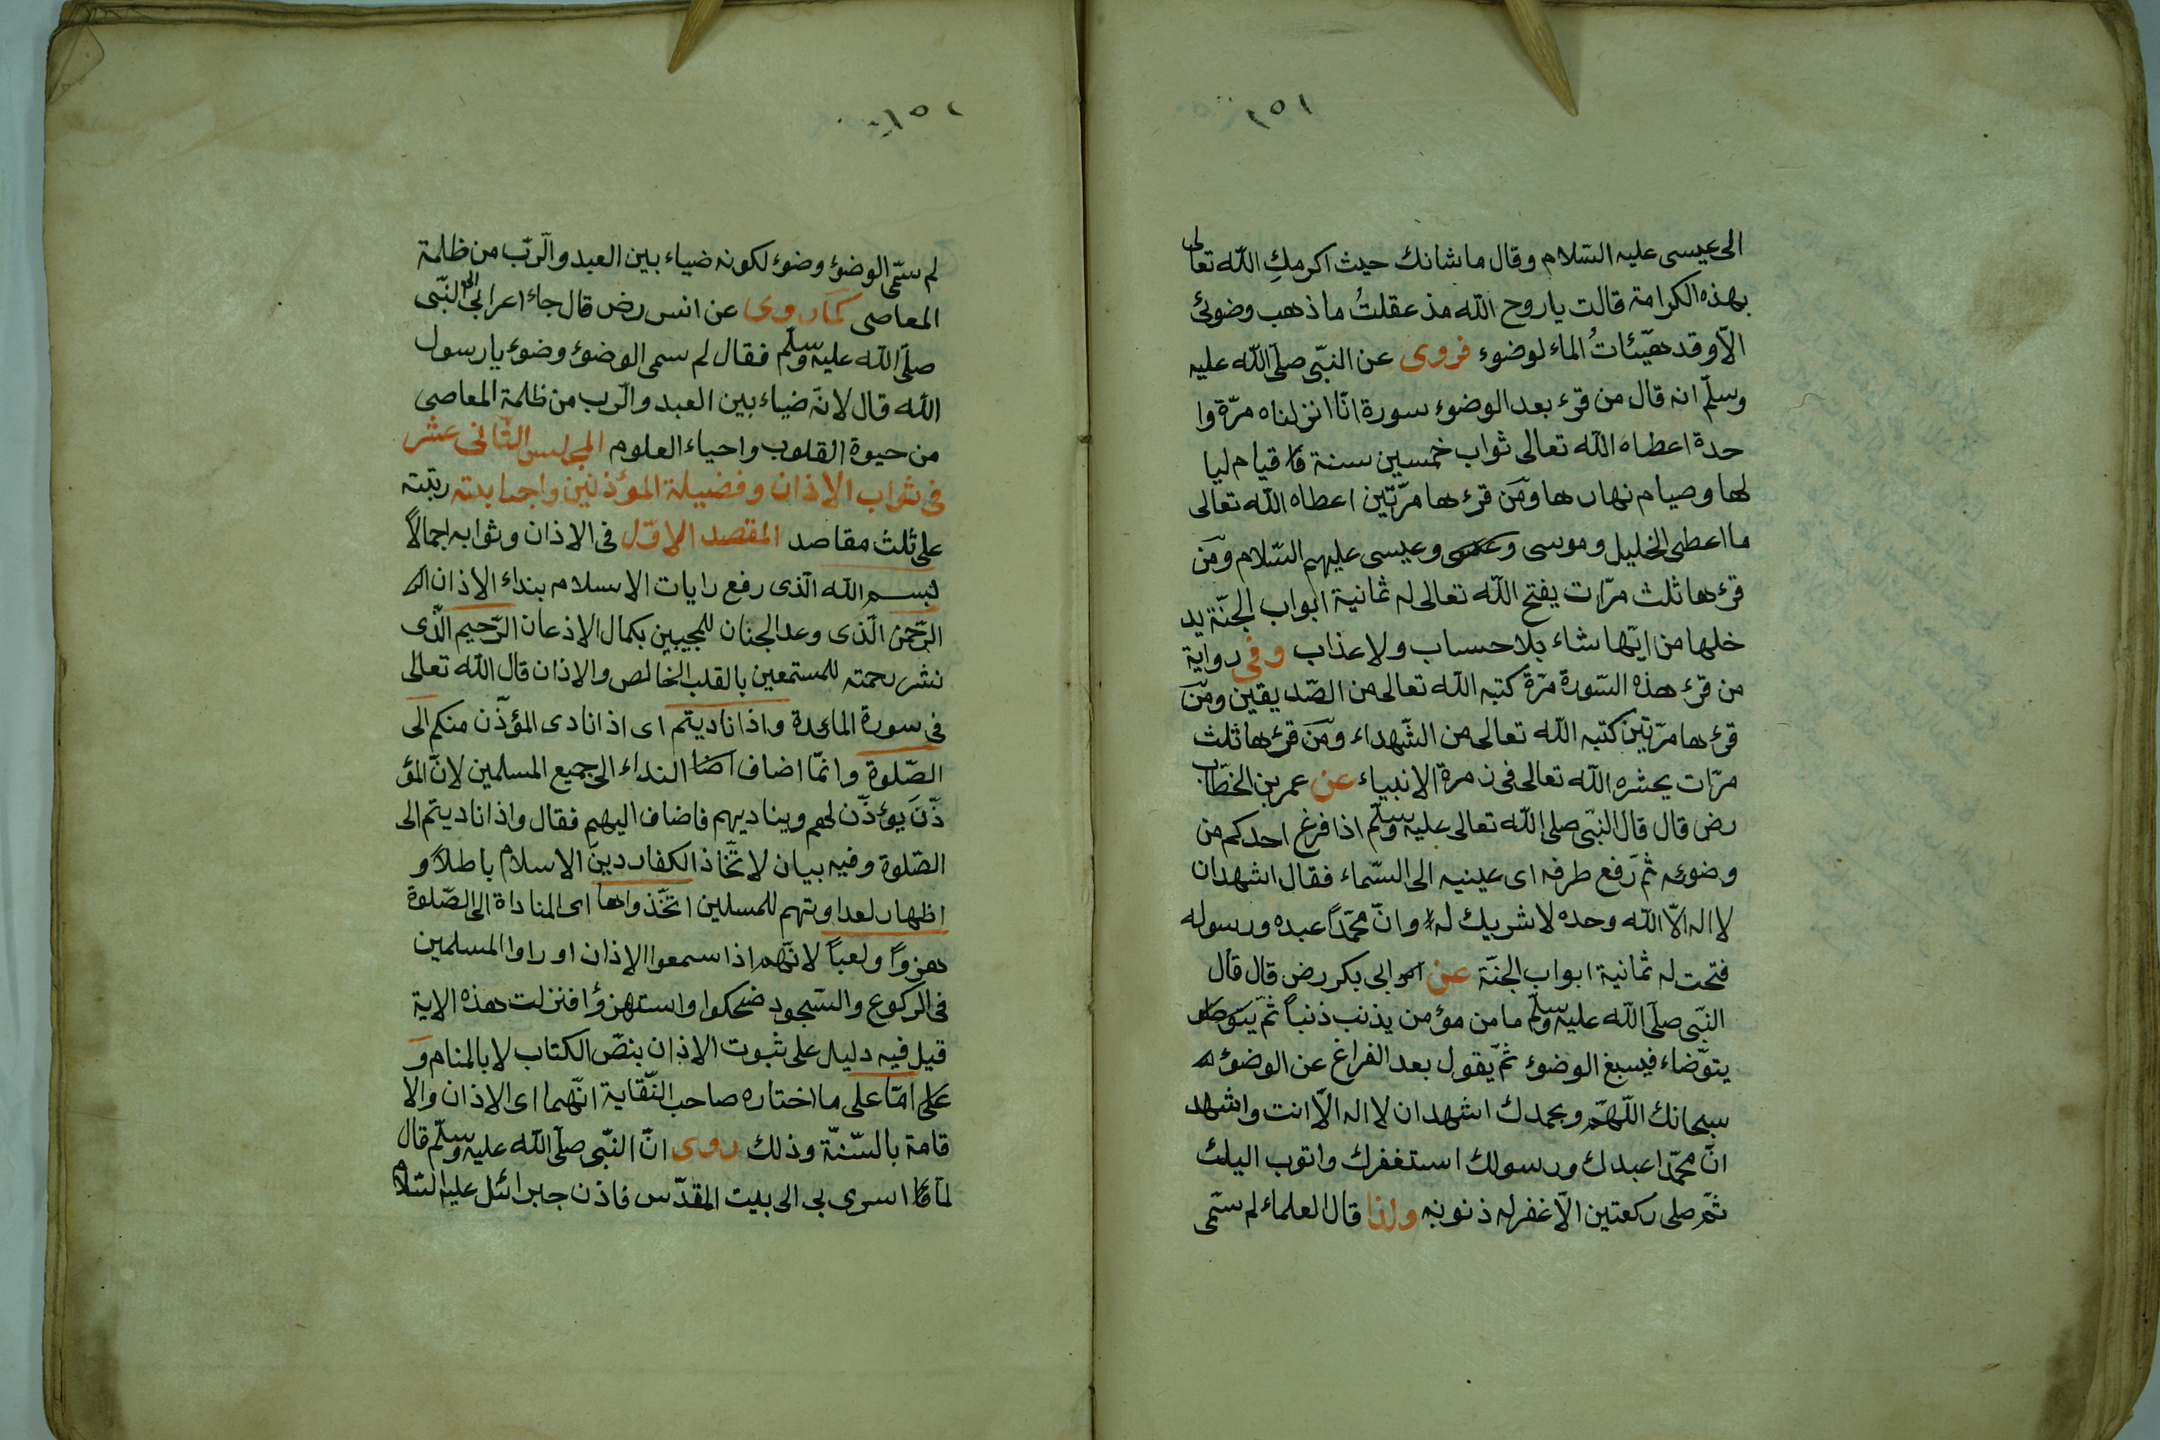 ١٥١
الى عيسى عليه السّلام وقال ما شانك حيث اكرمكِ اللّه تعالى
بهذه الكرامة قالت يا روح اللّه مذ عقلتُ ما ذهب وضوئى
الّا وقد هيّئاتُ الماء لوضوء فروى عن النبّى صلّى اللّه عليه
وسلّم انه قال من قرء بعد الوضوء سورة انّا انزلناه مرّة وا
حدة اعطاه اللّه تعالى ثواب خمسين سنة قيام ليا
لها وصيام نهارها ومَن قرءها مرّتين اعطاه اللّه تعالى
ما اعطى الخليل وموسى وعيسى عليهم السّلام ومَن
قرءها ثلث مرّات يفتح اللّه تعالى له ثمانية ابواب الجنّة يد
خلها من ايّها شاء بلا حساب ولا عذاب وفى رواية
من قرء هذه السّورة مرّة كتبه اللّه تعالى من الصّديقين ومَن
قرءها مرّتين كتبه اللّه تعالى من الشّهداء ومَن قرءها ثلث
مرّات يحشره اللّه تعالى فى زمرة الانبياء عن عمر بن الخطّاب
رض قال قال النبّى صلى اللّه تعالى عليه وسلّم اذا فرغ احدكم من
وضوئه ثمّ رَفع طرفه اى عينيه الى السّماء فقال اشهد ان
لا اله الّا اللّه وحده لا شريك له وانّ محمّداً عبده ورسوله
فتحت له ثمانية ابواب الجنّة عن ابى بكر رض قال قال
النبّى صلّى اللّه عليه وسلّم ما من مؤمن يذنب ذنباً ثمّ
يتوّضاء فيسبغ الوضوء ثمّ يقول بعد الفراغ عن الوضوء
سبحانك اللّهمّ وبحمدك اشهد ان لا اله الّا انت واشهد
انّ محمّدا عبدك ورسولك استغفرك واتوب اليك
ثمّ صلى ركعتين الّا غفر له ذنوبه ولذا قال العلماء لم سمّى
لم سمّى الوضوء وضوء لكونه ضياء بين العبد والرّب من ظلمة
المعاصى كما روى عن انس رض قال جاء اعرابى الى النبّى
صلّى اللّه عليه وسلّم فقال لم سمى الوضوء وضوء يا رسول
اللّه قال لانّه ضياء بين العبد والرّب من ظلمة المعاصى
من حيوة القلوب واحياء العلوم المجلس الثّانى عشر
فى ثواب الاذان وفضيلة المؤذنين واجابته رتبّته
على ثلث مقاصد المقصد الاوّل فى الاذان وثوابه اجمالاً
بسم اللّه الّذى رفع رايات الاسلام بنداء الاذان
الرّحمن الّذى وعد الجنان للمجيبين بكمال الاذعان الرّحيم الّذى
نشر رحمته للمستمعين بالقلب الخالص والاذان قال اللّه تعالى
فى سورة المائدة واذا ناديتم اى اذا نادى المؤذّن منكم الى
الصّلوة وانمّا اضاف النداء الى جميع المسلمين لانّ المؤ
ذّنَ يؤذّن لهم ويناديهم فاضاف اليهم فقال واذا ناديتم الى
الصّلوة وفيه بيان لاتّخاذ الكفار دين الاسلام باطلاً و
اظهار لعداوتهم للمسلين اتّخذواها اى المناداة الى الصّلوة
هزواً ولعباً لانّهم اذا سمعوا الاذان او راوا المسلمين
فى الركوع والسّجود ضحكوا واستهزؤا فنزلت هذه الاية
قيل فيه دليل على ثبوت الاذان بنصّ الكتاب لا بالمنام و
امّا على ما اختاره صاحب النّقاية انّهما اى الاذان والا
قامة بالسّنّة وذلك روى انّ النبّى صلّى اللّه عليه وسلّم قال
لمّا اسرى بى الى بيت المقدّس فاذن جبرائل عليه السّلام